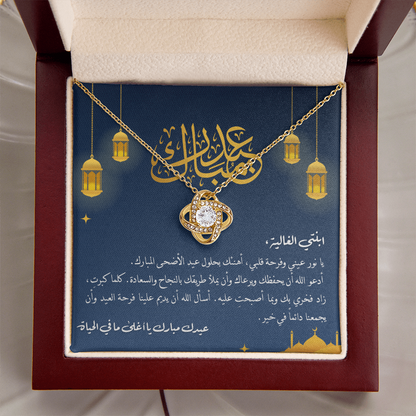 عيد مبارك
ابنتي الغالية،
يا نور عيني وفرحة قلبي، أهنئك بحلول عيد الأضحى المبارك.
أدعو الله أن يحفظك ويرعاك وأن يملأ طريقك بالنجاح والسعادة. كلما كبرتِ،
زاد فخري بك وبما أصبحتِ عليه. أسأل الله أن يديم علينا فرحة العيد وأن
يجمعنا دائماً في خير.
عيدك مبارك يا أغلى ما في الحياة